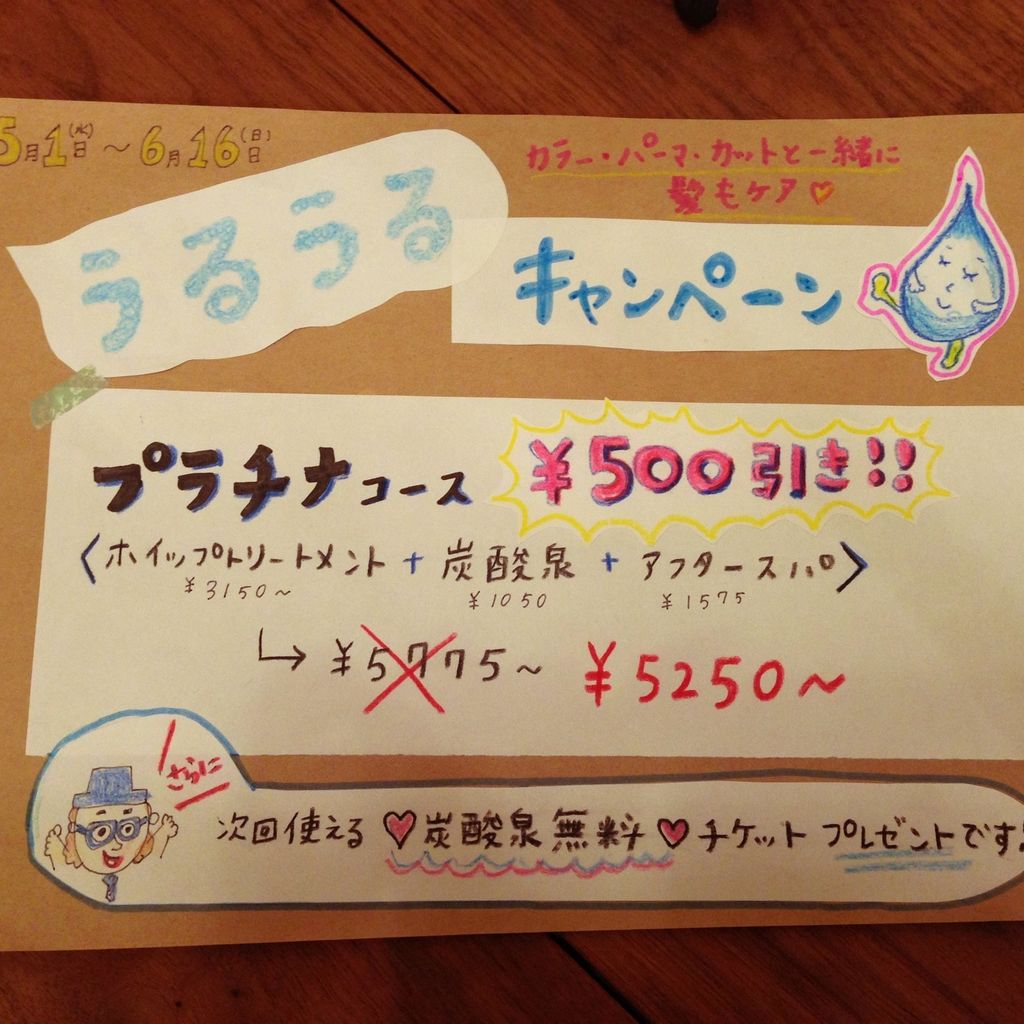 5月1日(水)～6月16日(日)
カラー・パーマ・カットと一緒に
髪もケア♡
うるうる
キャンペーン
プラチナコース ¥500引き!!
〈ホイップトリートメント + 炭酸泉 + アフタースパ〉
¥3150～ ¥1050 ¥1575
↳ ¥5775～ ¥5250～
さらに
次回使える♡炭酸泉無料♡チケットプレゼントです!